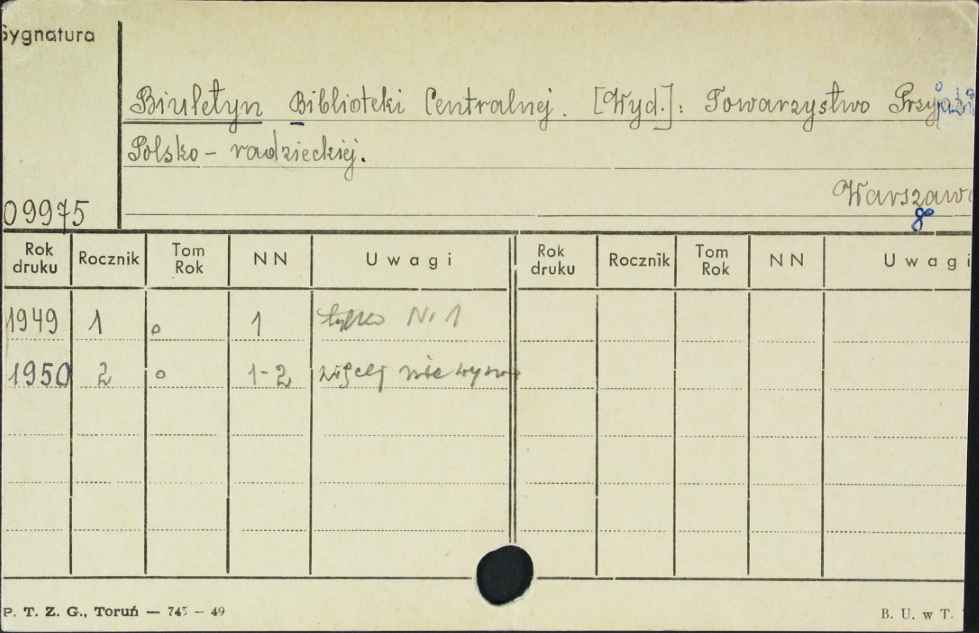 Sygnatura
Biuletyn Biblioteki Centralnej. [Wyd.]: Towarzystwo Przyjaźni
Polsko-radzieckiej.
Warszawa
8°
09975
Rok druku Rocznik Tom Rok NN Uwagi Rok druku Rocznik Tom Rok NN Uwagi
1949 1 ° 1 tylko Nr 1
1950 2 ° 1-2 więcej nie wysz
P. T. Z. G., Toruń — 745 — 49
B. U. w T.